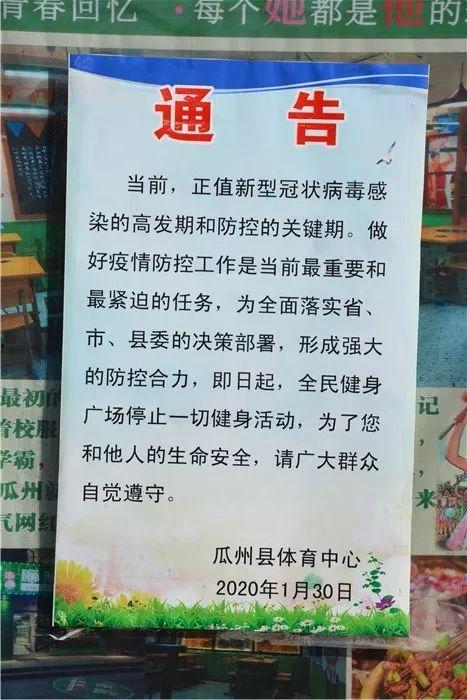 青春回忆 · 每个她都是他的
通 告
当前，正值新型冠状病毒感
染的高发期和防控的关键期。做
好疫情防控工作是当前最重要和
最紧迫的任务，为全面落实省、
市、县委的决策部署，形成强大
的防控合力，即日起，全民健身
广场停止一切健身活动，为了您
和他人的生命安全，请广大群众
自觉遵守。
瓜州县体育中心
2020年1月30日
最初的
校服
学霸，
瓜州
气网红
记
来